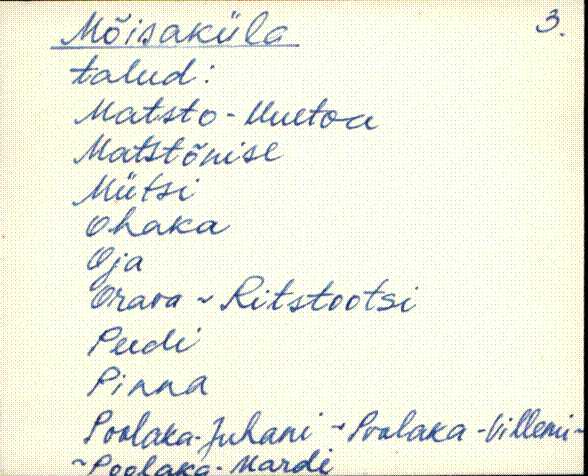 Mõisaküla 3.
talud:
Matsto-Uuetoa
Matstõnise
Mütsi
Ohaka
Oja
Orava ~ Ritstootsi
Peedi
Pinna
Poolaka-Juhani ~ Poolaka-Villemi ~
~Poolaka-Mardi